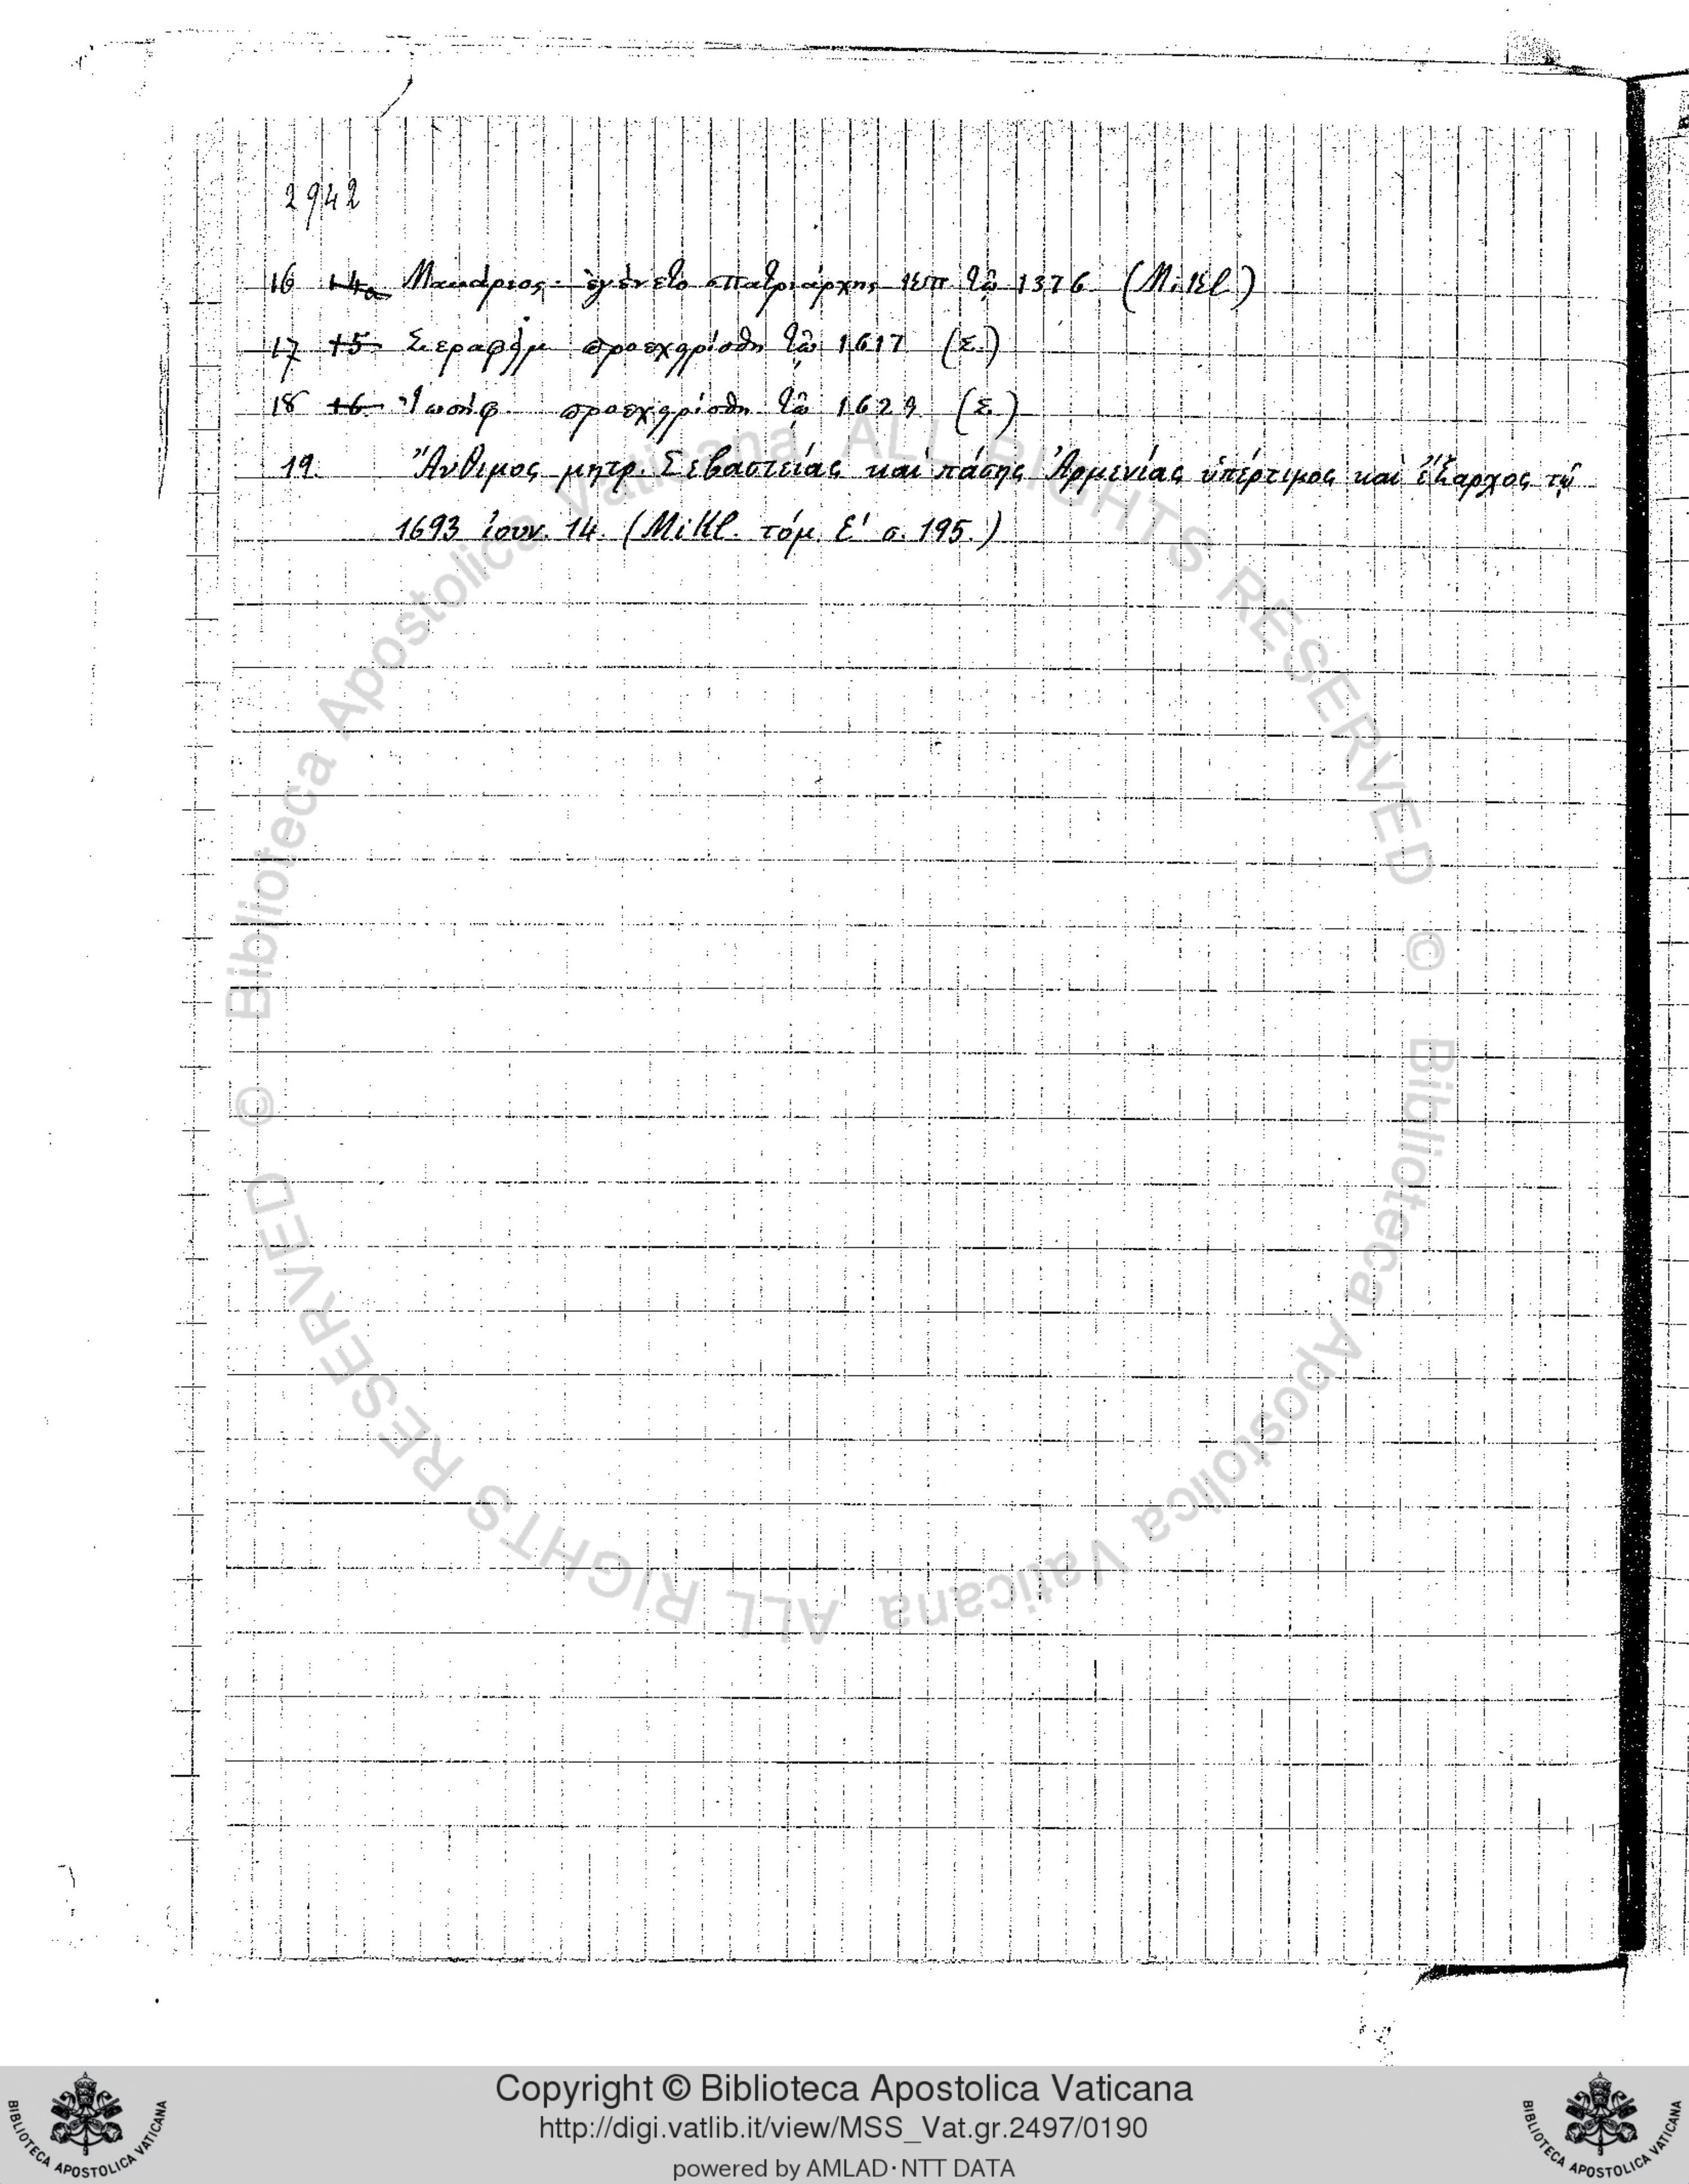 2942
16 14α Μακάριος ἐγένετο πατριάρχης Κπ τῷ 1376 (Mikl)
17 15 Σεραφὴμ προεχωρίσθη τῷ 1617 (Σ.)
18 16 Ἰωσήφ προεχωρίσθη τῷ 1629 (Σ.)
19. Ἄνθιμος μητρ. Σεβαστείας καὶ πάσης Ἀρμενίας ὑπέρτιμος καὶ ἔξαρχος τῷ
1693 ἰουν. 14. (Mikl. τόμ. Ε' σ. 195.)
© Biblioteca Apostolica Vaticana ALL RIGHTS RESERVED
© Biblioteca Apostolica Vaticana ALL RIGHTS RESERVED
Copyright © Biblioteca Apostolica Vaticana
http://digi.vatlib.it/view/MSS_Vat.gr.2497/0190
powered by AMLAD·NTT DATA
BIBLIOTECA APOSTOLICA VATICANA
BIBLIOTECA APOSTOLICA VATICANA